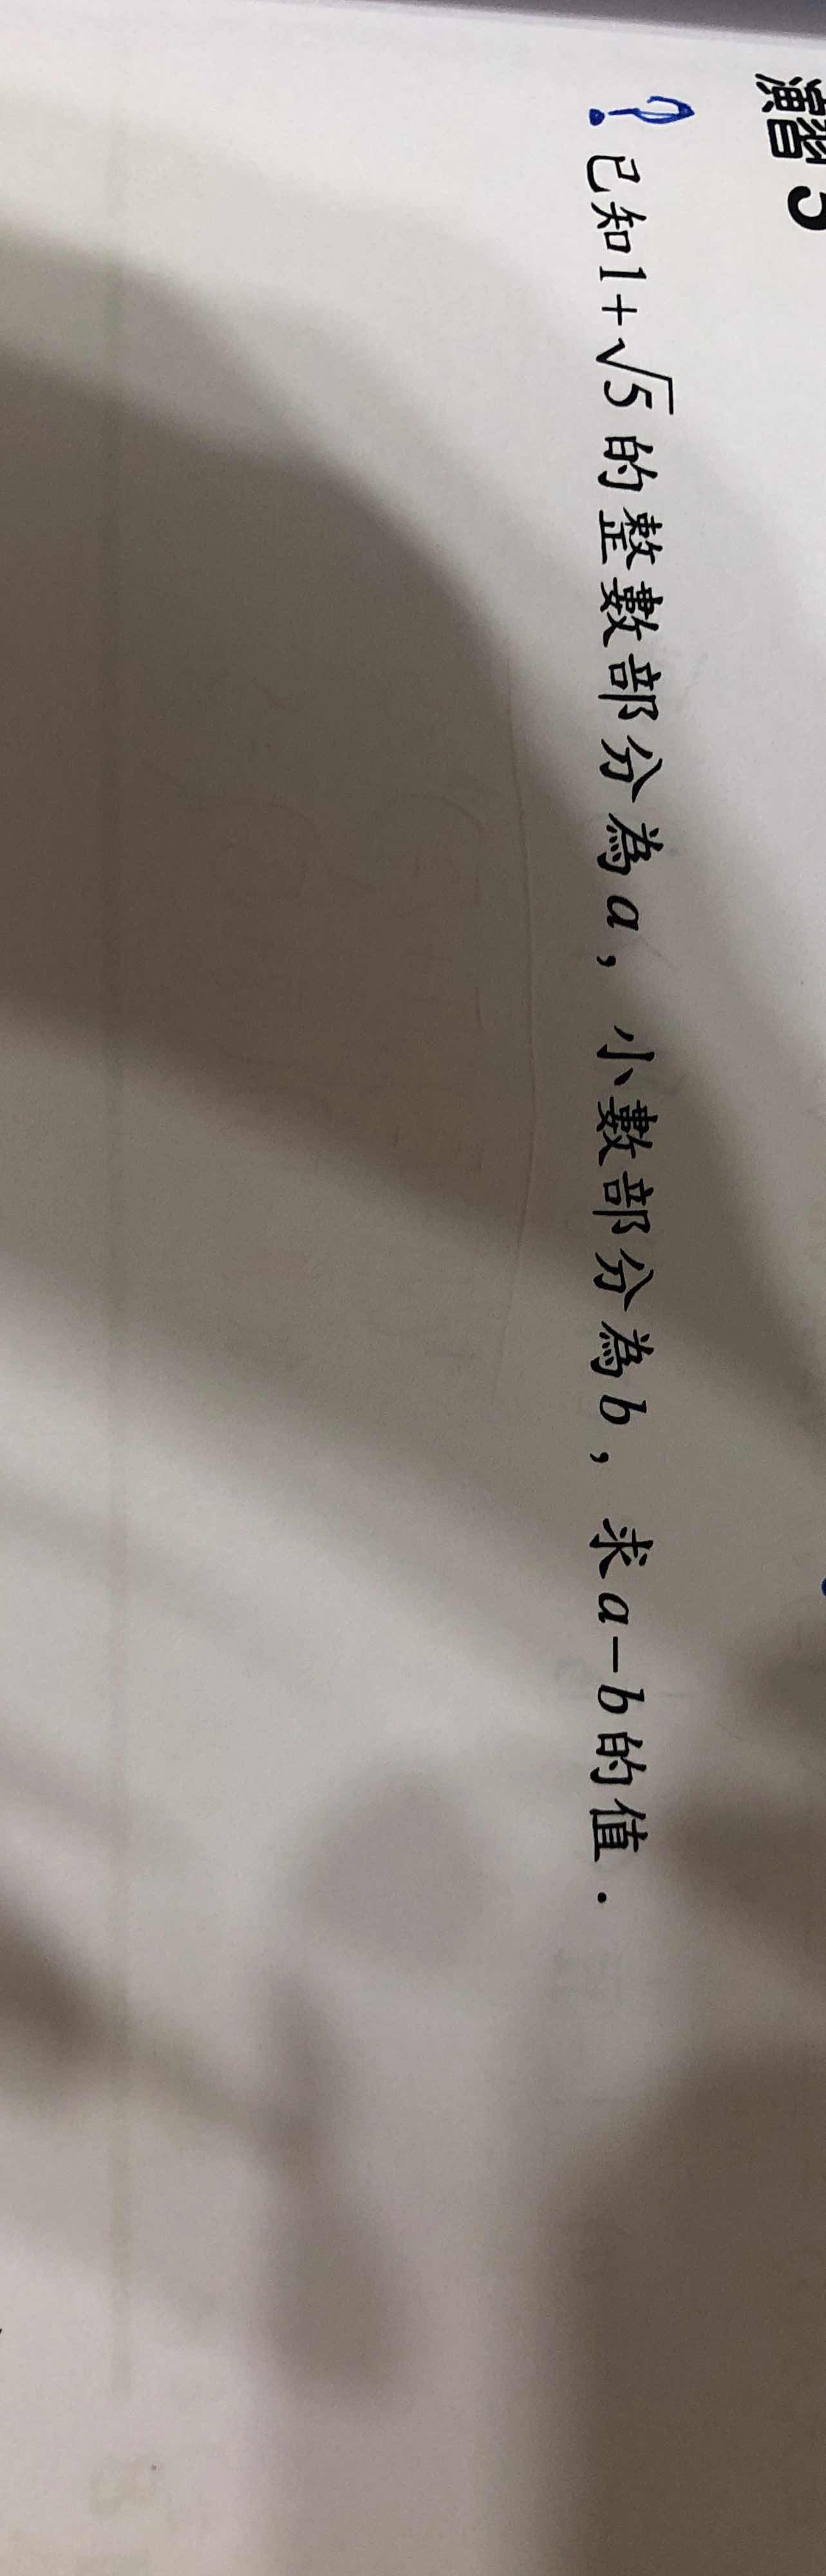 演習 5
? 已知1+√5的整數部分為a，小數部分為b，求a−b的值．